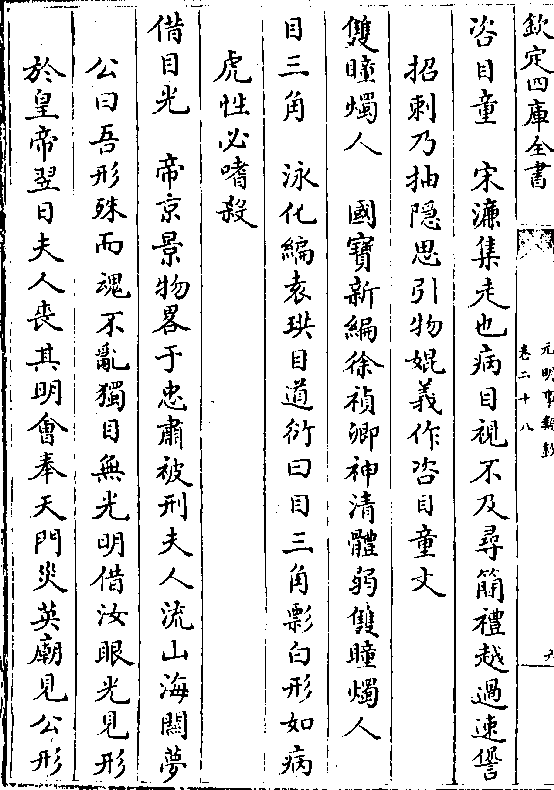 欽定四庫全書
元明事類鈔
卷二十八
九
咨目童　宋濂集走也病目視不及尋簡禮越過速諐
招刺乃抽隠思引物媲義作咨目童文
雙瞳燭人　國寳新編徐禎卿神清體弱雙瞳燭人
目三角　泳化編袁珙目道衍曰目三角影白形如病
虎性必嗜殺
借目光　帝京景物畧于忠肅被刑夫人流山海闗夢
公曰吾形殊而魂不亂獨目無光明借汝眼光見形
於皇帝翌日夫人喪其明會奉天門災英廟見公形